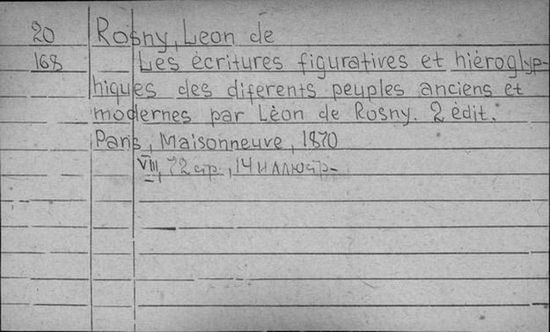 20 Rosny, Leon de
168 Les écritures figuratives et hiéroglyp-
hiques des diferents peuples anciens et
modernes par Lèon de Rosny. 2 édit.
Paris, Maisonneuve, 1870
VIII, 72 стр., 14 иллюстр-